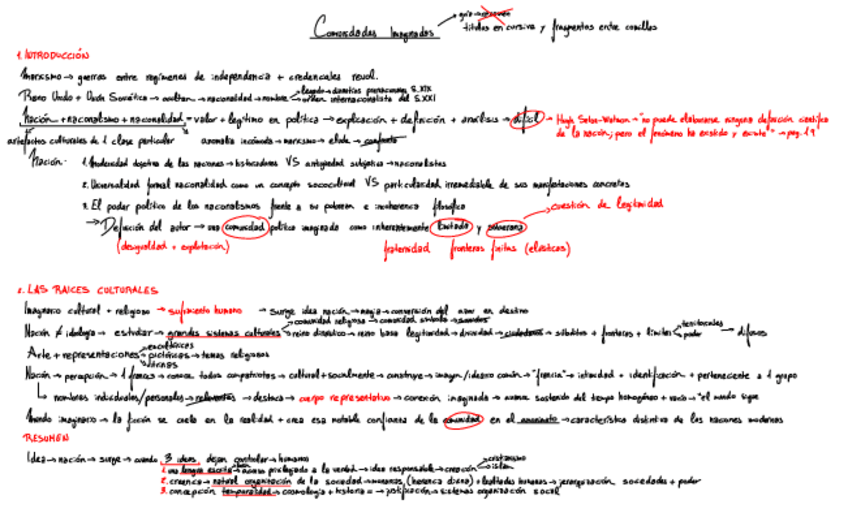 Comunidades Imaginadas
títulos en cursiva y fragmentos entre comillas
1. INTRODUCCIÓN
Marxismo → guerras entre regímenes de independencia + credenciales revol.
Reino Unido + Unión Soviética → ocultan → nacionalidad → nombre legado → dinastías prenacionales S.XIX
orden internacionalista del S.XXI
Nación + nacionalismo + nacionalidad = valor + legítimo en política → explicación + definición + análisis → difícil → Hugh Seton-Watson → "no puede elaborarse ninguna definición científica
de la nación; pero el fenómeno ha existido y existe" → pag. 19
artefactos culturales de 1 clase particular anomalía incómoda → marxismo → elude →
Nación. 1. Modernidad objetiva de las naciones → historiadores VS antigüedad subjetiva → nacionalistas
2. Universalidad formal nacionalidad como un concepto sociocultural VS particularidad irremediable de sus manifestaciones concretas
3. El poder político de los nacionalismos frente a su pobreza e incoherencia filosófica
→ Definición del autor → una comunidad política imaginada como inherentemente limitada y soberana → cuestión de legitimidad
(desigualdad + explotación) fraternidad fronteras finitas (elásticas)
2. LAS RAICES CULTURALES
Imaginario cultural + religioso → sufrimiento humano → surge idea nación → magia → conversión del azar en destino
Nación ≠ ideología → estudiar → grandes sistemas culturales comunidad religiosa → comunidad símbolo → sagrados
reino dinástico → reino basa legitimidad → divinidad → súbditos + fronteras + límites territoriales
poder → difusos
Arte + representaciones escultóricas
pictóricas → temas religiosos
vitrinas
Nación → percepción → 1 francés → conoce todos compatriotas → cultural + socialmente → construye → imagen/ideario común → "francia" → intimidad + identificación + perteneciente a 1 grupo
nombres individuales/personales → relevantes → destaca → cuerpo representativo → conexión imaginada → avance sostenido del tiempo homogéneo + vacío → "el mundo sigue
Mundo imaginario → la ficción se cuela en la realidad + crea esa notable confianza de la comunidad en el anonimato → característica distintiva de las naciones modernas
RESUMEN
Idea → nación → surge → cuando 3 ideas dejan controlar → humanos
1. una lengua escrita → acceso privilegiado a la verdad → idea responsable → creación cristianismo
islam
2. creencia → natural organización de la sociedad → monarcas (herencia divina) + lealtades humanas → jerarquización sociedades + poder
3. concepción temporalidad → cosmología + historia = → justificación → sistemas organización social